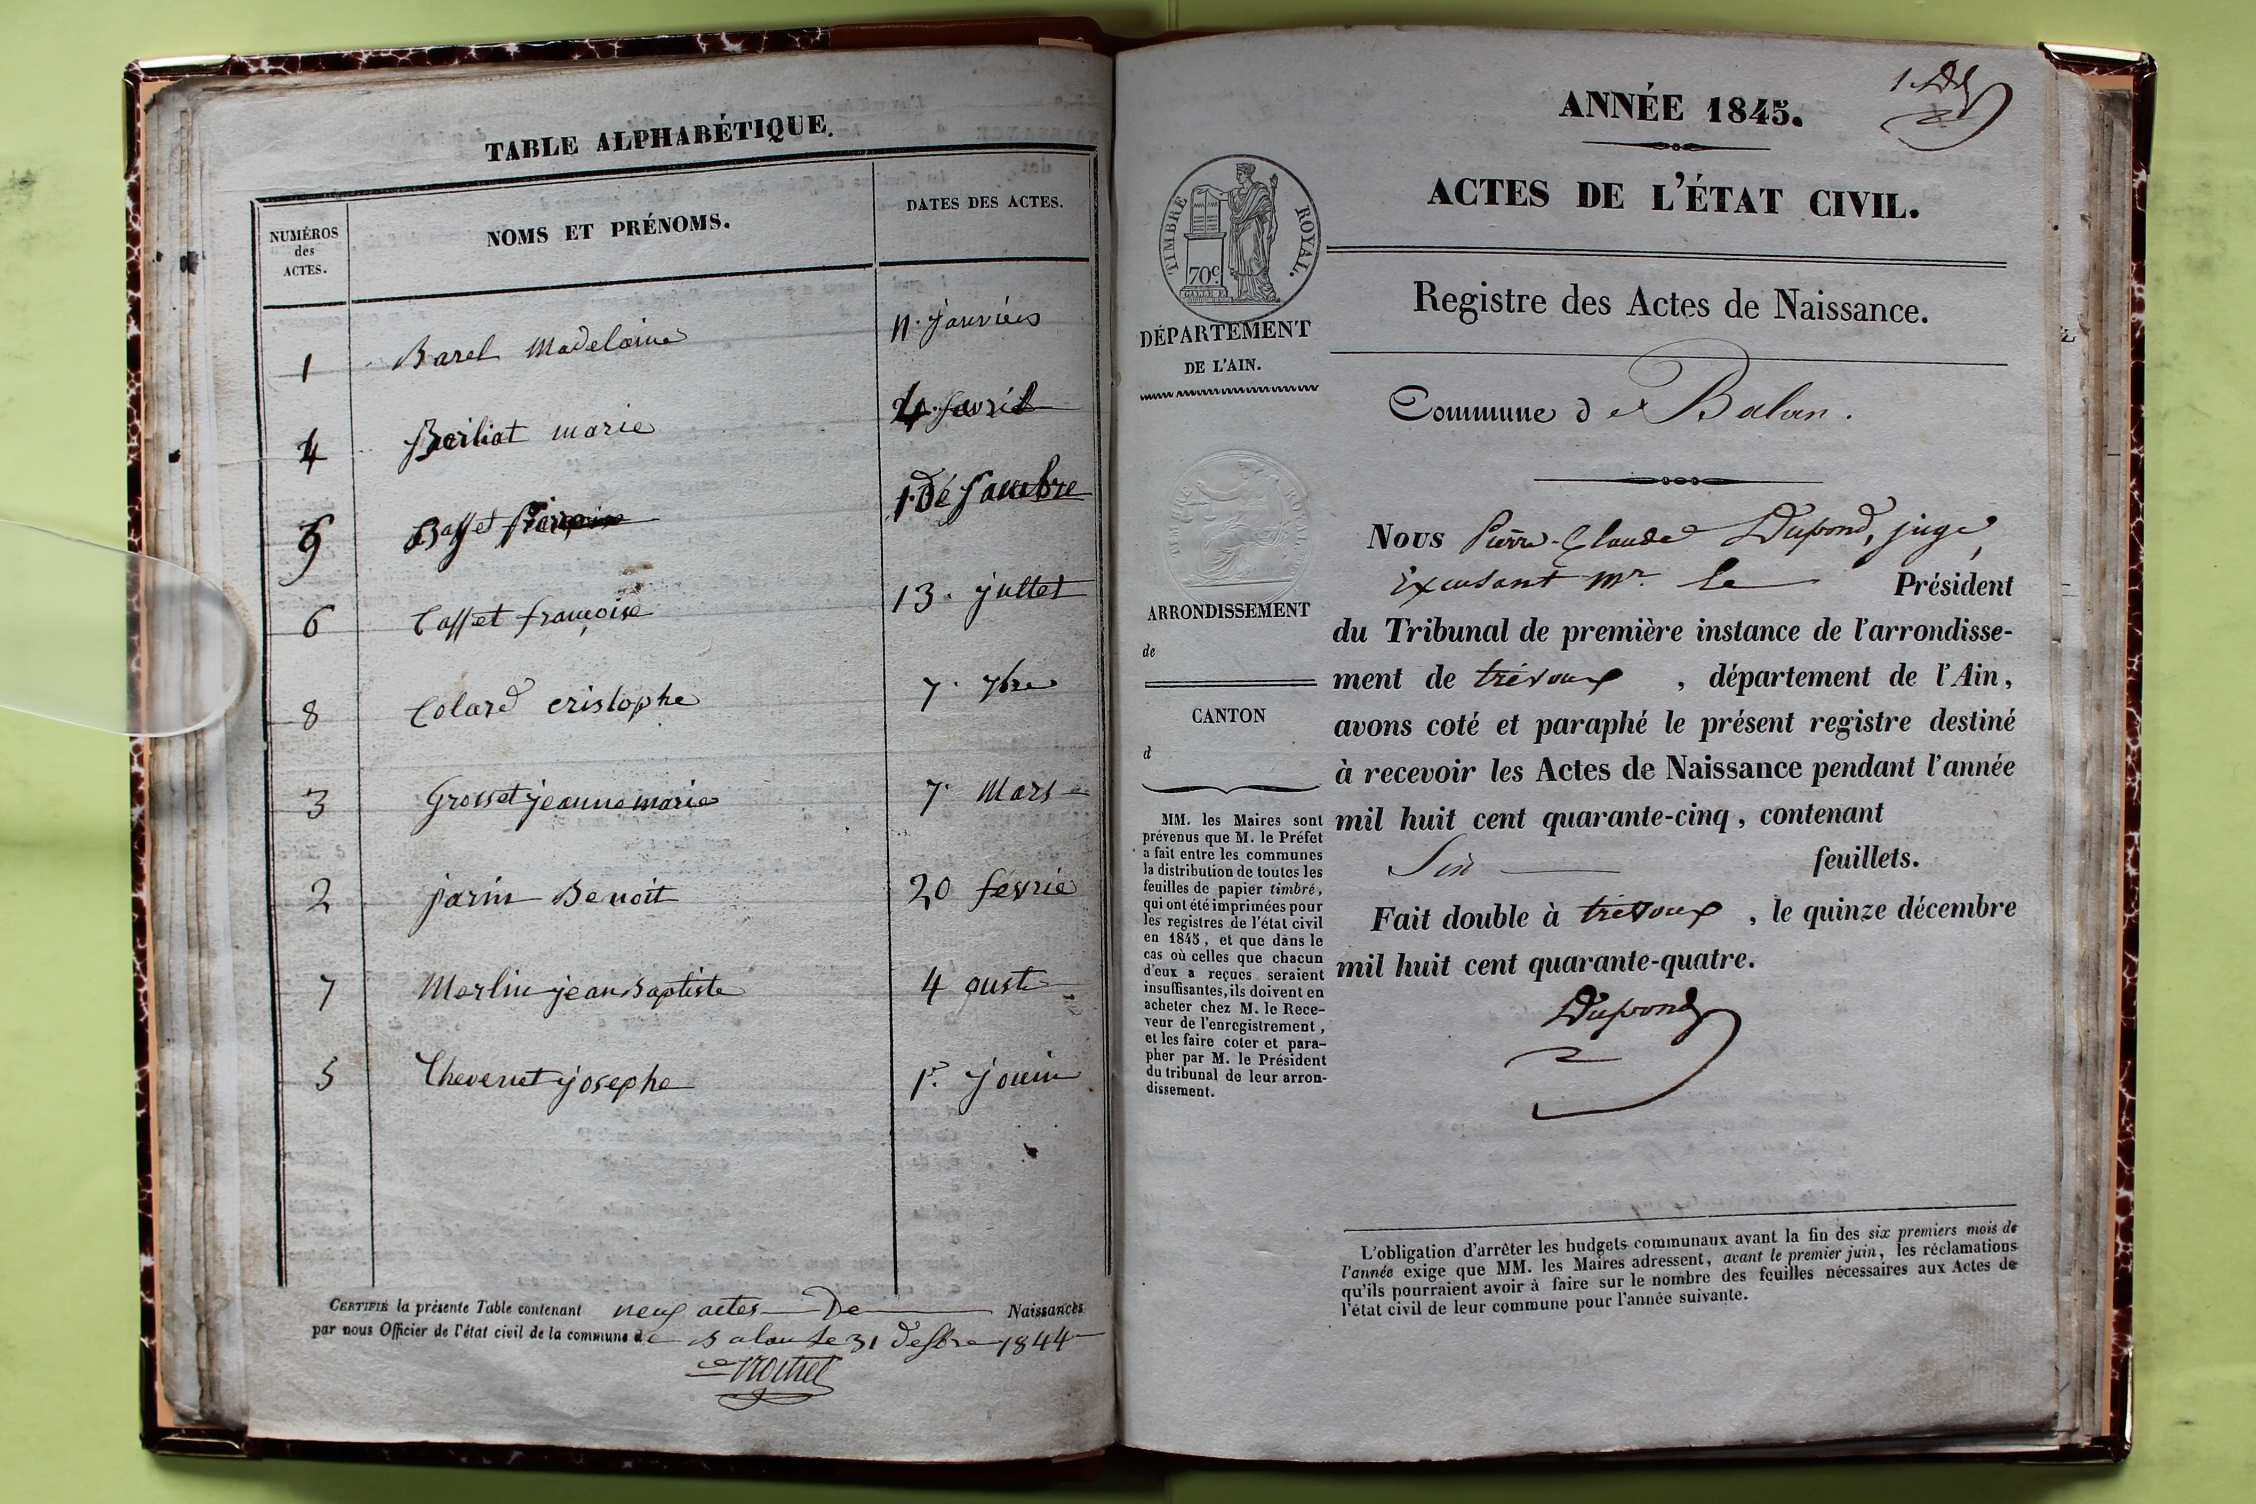 TABLE ALPHABÉTIQUE.
NUMÉROS
des
ACTES.
NOMS ET PRÉNOMS.
DATES DES ACTES.
1 Barel Madelaine 11. janviers
4 Berliat marie 4. avril
9 Basset 1. Désambre
6 Casset françoise 13. jullet
8 Colard cristophe 7. 7bre
3 Grosset jeanne marie 7. Mars
2 jarin Benoit 20 févrié
7 Merlin jean Baptiste 4 oust
5 Thevenet josephe 1r. jouin
CERTIFIÉ la présente Table contenant neuf actes De Naissances
par nous Officier de l'état civil de la commune de Balan le 31 desbre 1844
1
ANNÉE 1845.
ACTES DE L'ÉTAT CIVIL.
Registre des Actes de Naissance.
Commune de Balan.
TIMBRE ROYAL.
70c.
DÉPARTEMENT
DE L'AIN.
ARRONDISSEMENT
de
CANTON
d
MM. les Maires sont
prévenus que M. le Préfet
a fait entre les communes
la distribution de toutes les
feuilles de papier timbré,
qui ont été imprimées pour
les registres de l'état civil
en 1845, et que dans le
cas où celles que chacun
d'eux a reçues seraient
insuffisantes, ils doivent en
acheter chez M. le Rece-
veur de l'enregistrement,
et les faire coter et para-
pher par M. le Président
du tribunal de leur arron-
dissement.
Nous Pierre-Claude Dupond, juge,
Excusant Mr. le Président
du Tribunal de première instance de l'arrondisse-
ment de trévoux, département de l'Ain,
avons coté et paraphé le présent registre destiné
à recevoir les Actes de Naissance pendant l'année
mil huit cent quarante-cinq, contenant
Six feuillets.
Fait double à trévoux, le quinze décembre
mil huit cent quarante-quatre.
Dupond
L'obligation d'arrêter les budgets communaux avant la fin des six premiers mois de
l'année exige que MM. les Maires adressent, avant le premier juin, les réclamations
qu'ils pourraient avoir à faire sur le nombre des feuilles nécessaires aux Actes de
l'état civil de leur commune pour l'année suivante.